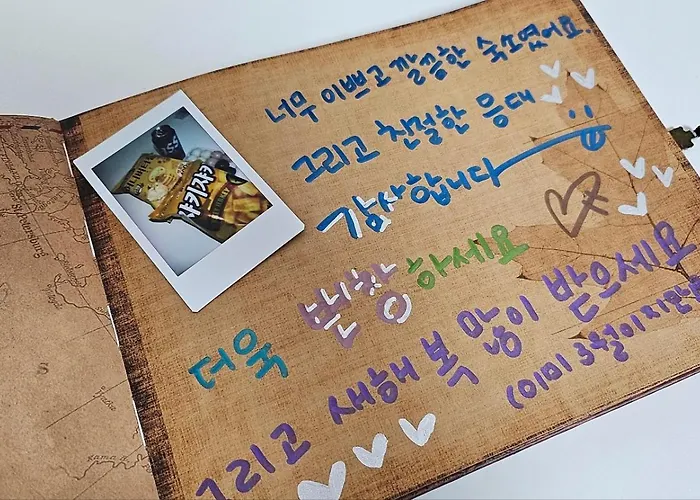 너무 이쁘고 깔끔한 숙소였어요.
그리고 친절한 응대
감사합니다
더욱 번창하세요
그리고 새해 복 많이 받으세요
(이미 3월이지만
샤키샤키
S